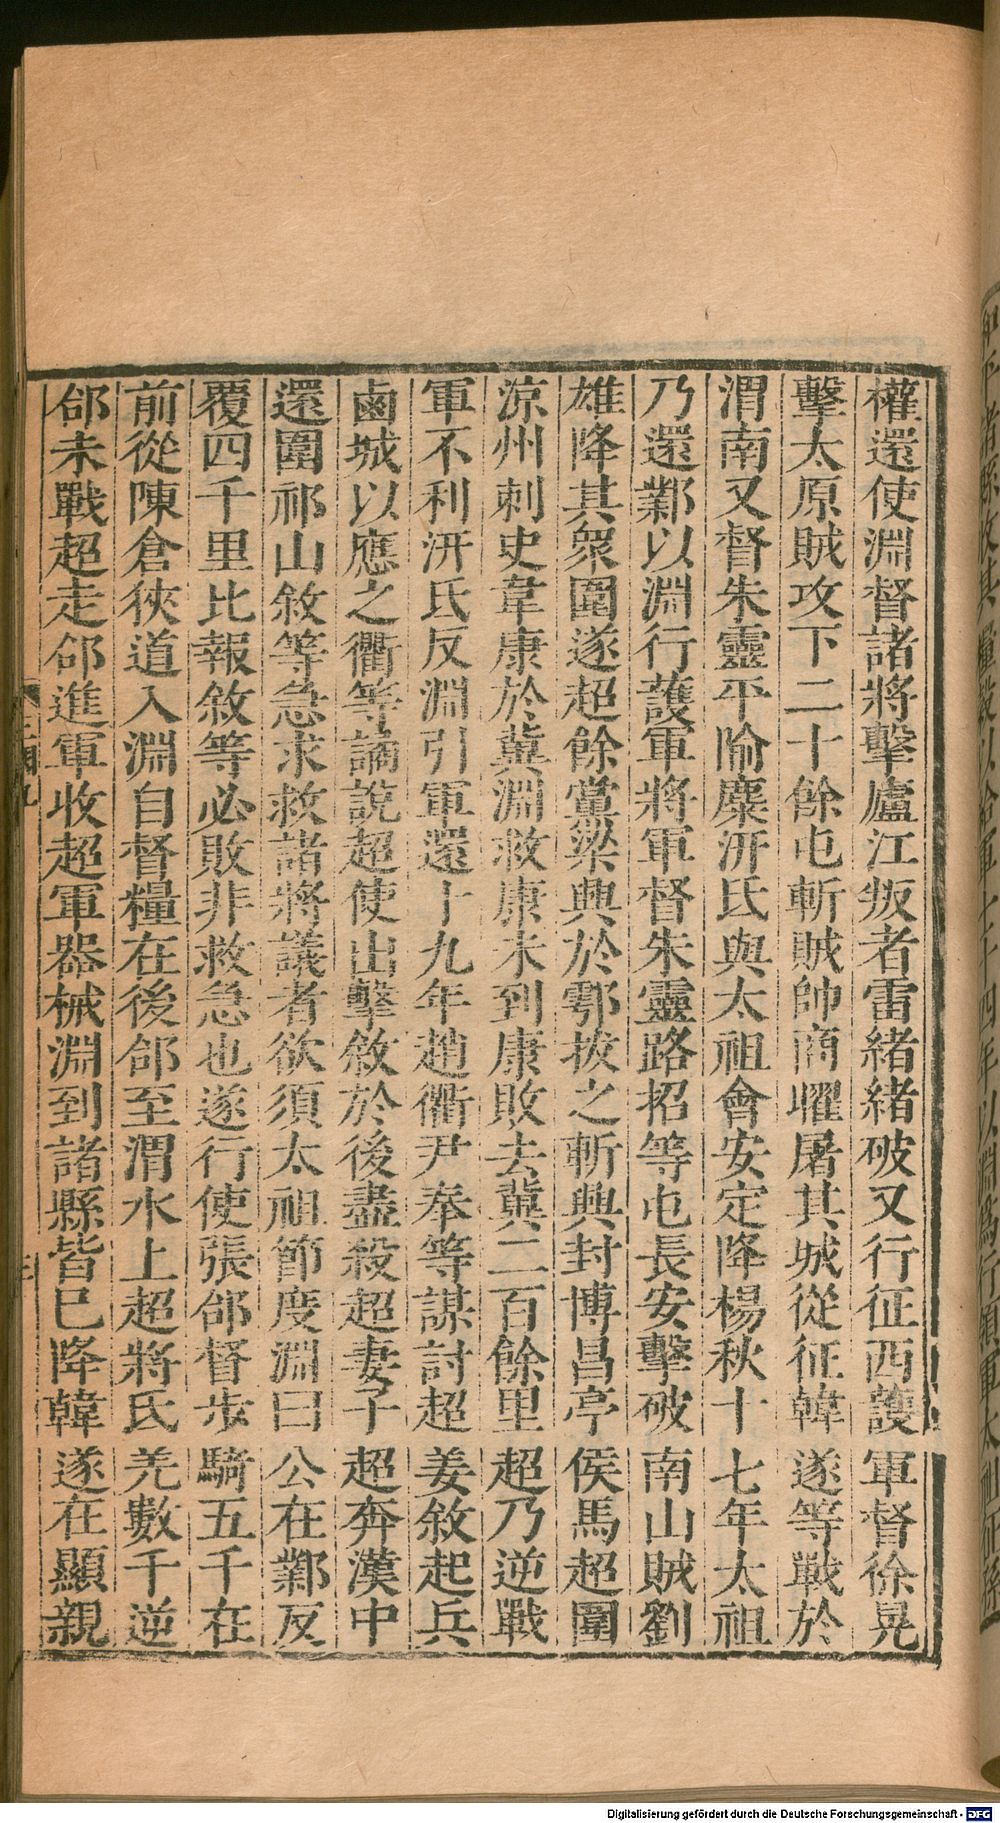 權還使淵督諸將擊廬江叛者雷緒緒破又行征西護軍督徐晃
擊太原賊攻下二十餘屯斬賊帥商曜屠其城從征韓遂等戰於
渭南又督朱靈平隃麋汧氐與太祖會安定降楊秋十七年太祖
乃還鄴以淵行護軍將軍督朱靈路招等屯長安擊破南山賊劉
雄降其衆圍遂超餘黨梁興於鄠拔之斬興封博昌亭侯馬超圍
涼州刺史韋康於冀淵救康未到康敗去冀二百餘里超乃逆戰
軍不利汧氐反淵引軍還十九年趙衢尹奉等謀討超姜敘起兵
鹵城以應之衢等譎說超使出擊敘於後盡殺超妻子超奔漢中
還圍祁山敘等急求救諸將議者欲須太祖節度淵曰公在鄴反
覆四千里比報敘等必敗非救急也遂行使張郃督步騎五千在
前從陳倉狹道入淵自督糧在後郃至渭水上超將氐羌數千逆
郃未戰超走郃進軍收超軍器械淵到諸縣皆已降韓遂在顯親
Digitalisierung gefördert durch die Deutsche Forschungsgemeinschaft - DFG